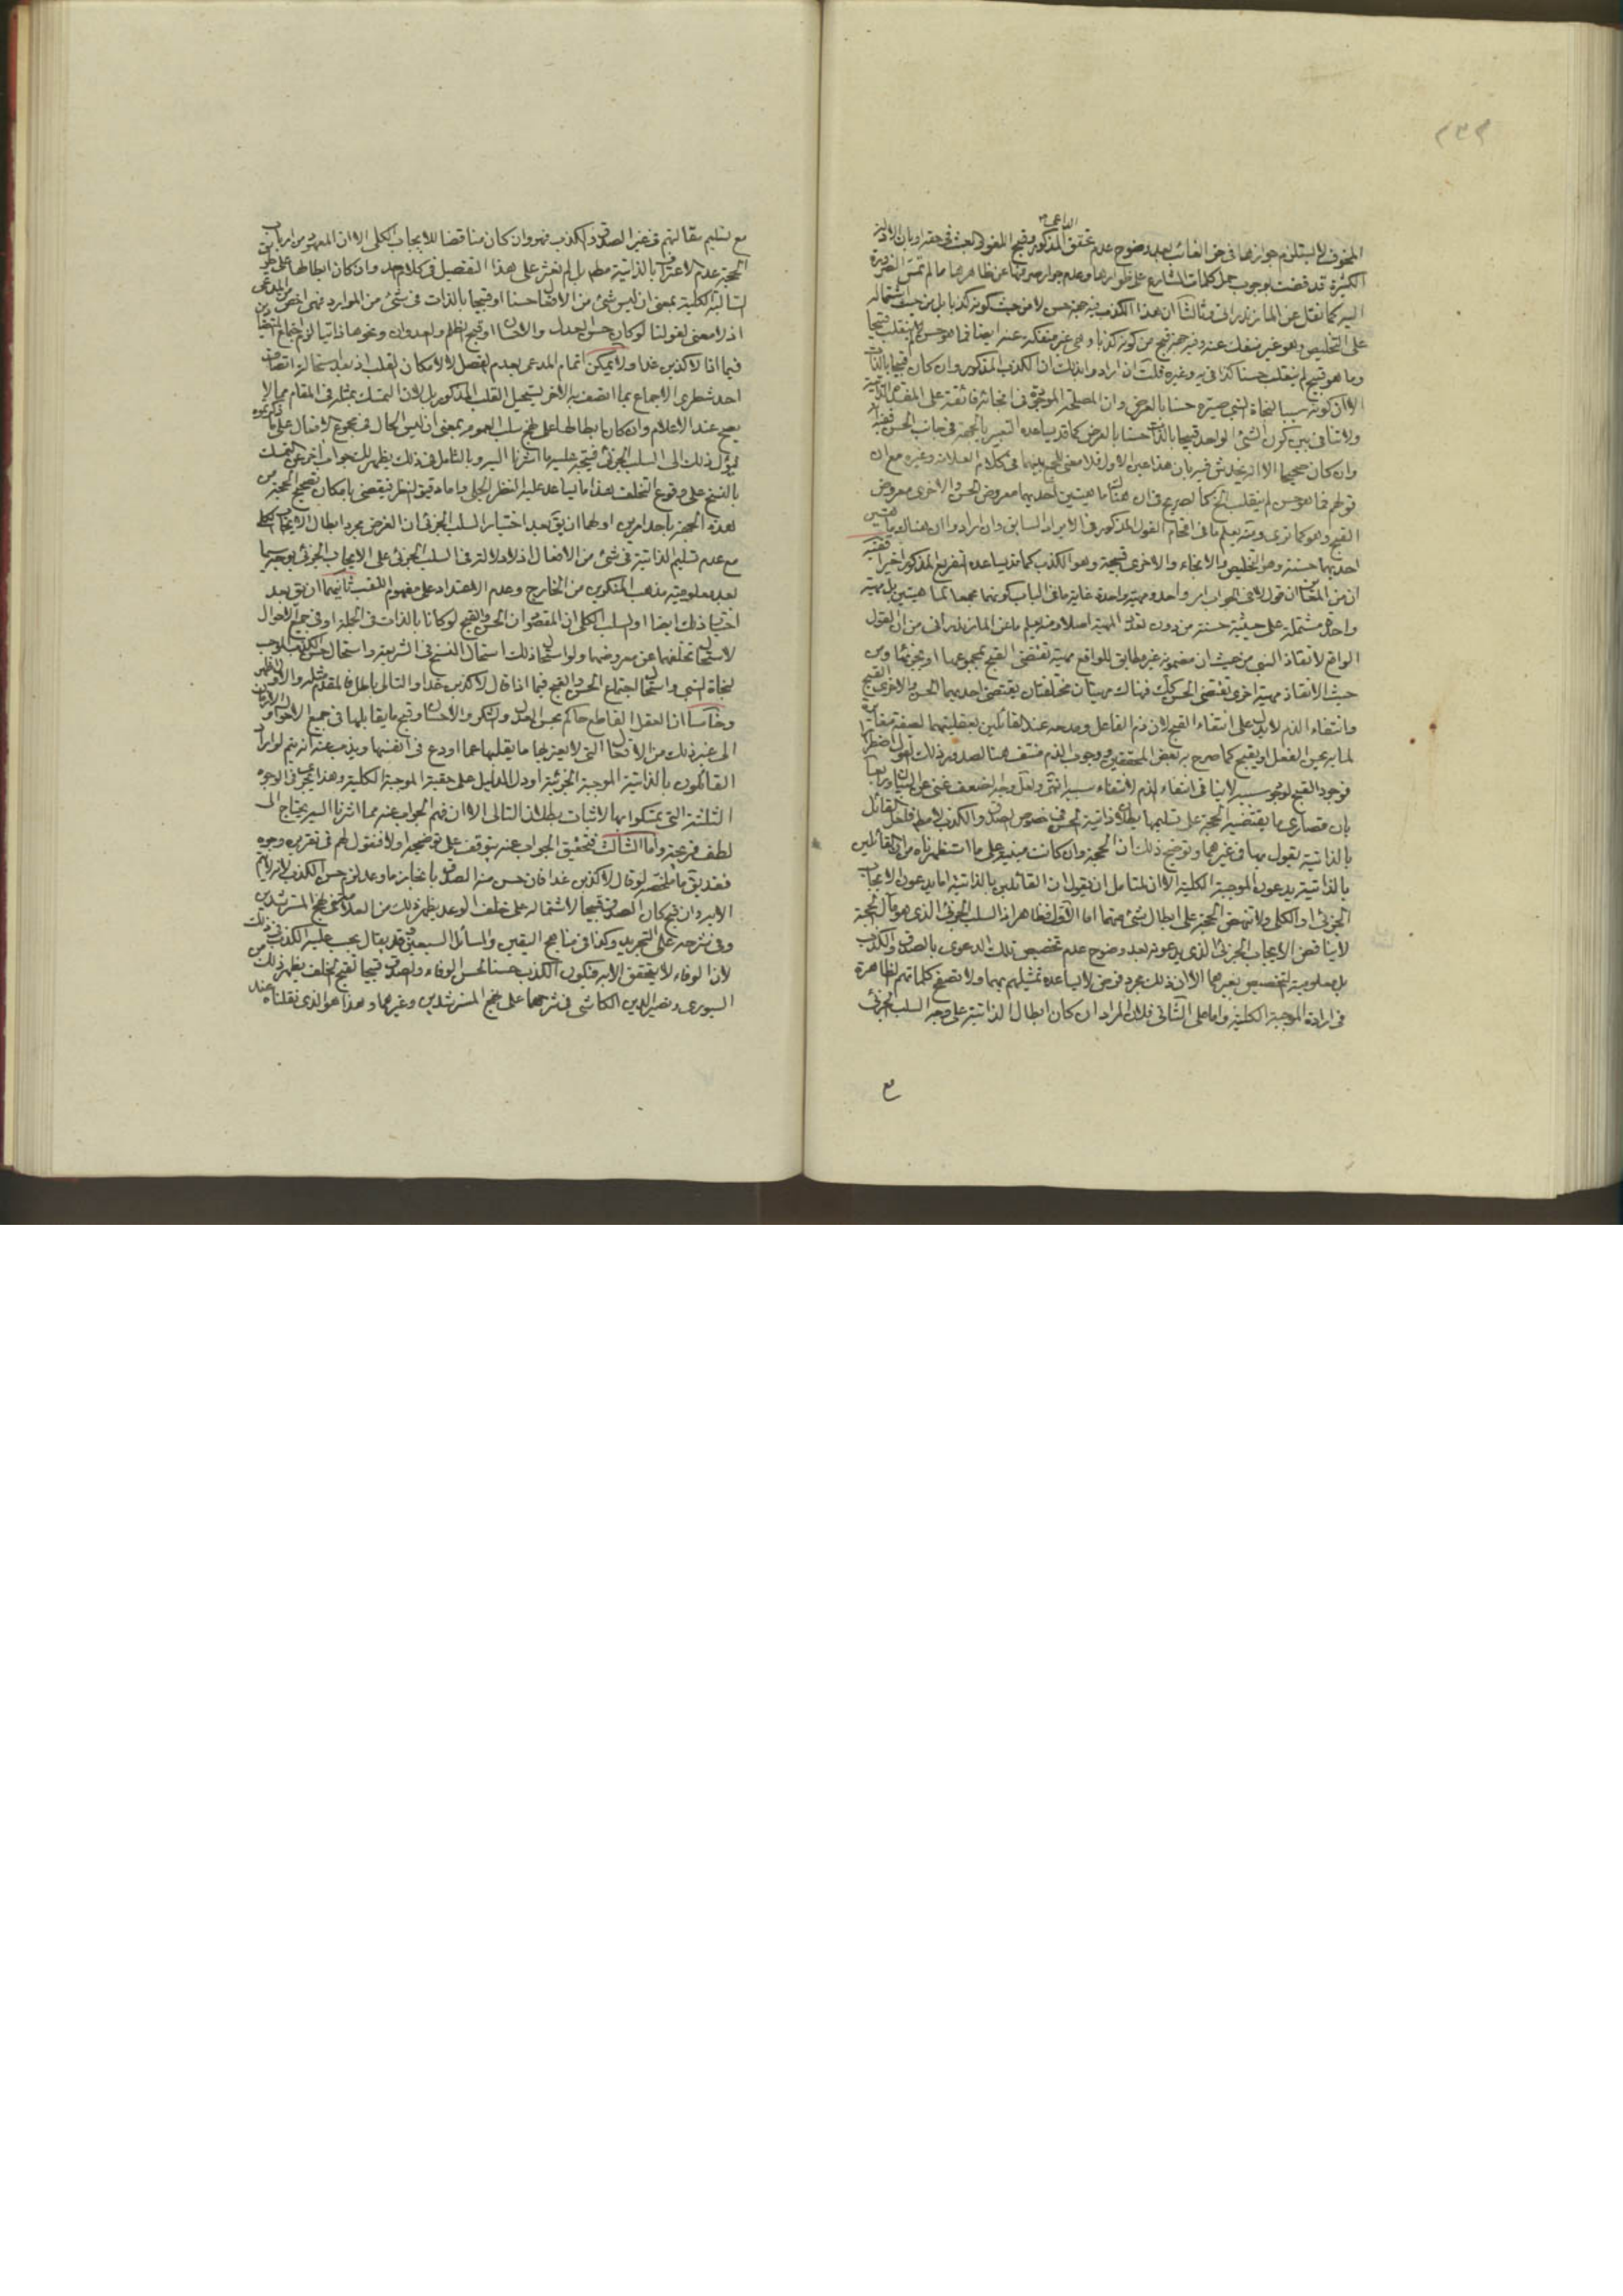 ٢٣٢
الداعي
المخوف لا يستلزم جوازها في حق الغائب بعد وضوح عدم تحقق المذكور وقبح المخوف العبث في حقه
الكثيرة قد قضت بوجوب حمل كلمات الشارع على ظواهرها وعدم جواز صرفها عن ظاهرها ما لم تمس الضرورة
اليه كما نقل عن المازندراني وثالثا ان هذا الكذب فيه جهة حسن لا من حيث كونه كذبا بل من حيث اشتماله
على التخليص وهو غير منفك عنه وفيه جهة قبح من كونه كذبا وهي غير منفكة عنه ايضا فما هو حسن لم ينقلب قبيحا
وما هو قبيح لم ينقلب حسنا كذا فيه وغيره قلت ان اراد وا بذلك ان الكذب المذكور وان كان قبيحا بالذات
الا ان كونه سببا لنجاة النبي صيره حسنا بالعرض وان المصلحة الموجودة في انجائه فائقة على المفسدة
ولا تنافي بين كون الشئ الواحد قبيحا بالذات حسنا بالعرض كما قد يساعده التعبير بالجهة في جانب الحسن
وان كان صحيحا الا انه يخدش فيه بان هذا عين الاول فلا معنى للجمع بينهما في كلام العلامة وغيره مع ان
قولهم فما هو حسن لم ينقلب الخ كالصريح في ان هناك ماهيتين احديهما معروض الحسن والاخرى معروض
القبح وهو كما ترى ومنه يعلم ما في اقحام القول المذكور في الايراد السابق وان ارادوا ان هناك ماهيتين
احديهما حسنة وهو التخليص والانجاء والاخرى قبيحة وهو الكذب كما قد يساعده التفريع المذكور اخيرا ففيه
ان من المعلوم ان قول لا في الجواب امر واحد ومهية واحدة غاية ما في الباب كونهما مجمعا لماهيتين بل مهية
واحدة مشتملة على حيثية حسنة من دون تعدد المهية اصلا ومنه يعلم ما عن المازندراني من ان القول
الواقع لانقاذ النبي من حيث ان مضمونه غير مطابق للواقع مهية تقتضي القبح
حيث الانقاذ مهية اخرى تقتضي الحسن كك فهناك مهيتان مختلفتان يقتضي احديهما الحسن والاخرى القبح
وانتفاء الذم لا يدل على انتفاء القبح لان ذم الفاعل ومدحه عند القائلين بعقليتهما لصفة
لما به يحسن الفعل او يقبح كما صرح به بعض المحققين ووجوب الذم منتف هنا لصدور ذلك القول اضطرارا
فوجود القبح لوجود سببه لا ينافي انتفاء الذم لانتفاء سببه انتهى ولعل وجه الضعف غني عن البيان ورابعا
بان قصارى ما يقتضيه الحجة على تسليمها بطلان ذاتية الحسن في خصوص الصدق والكذب لا مطلقا فلعل القائل
بالذاتية يقول بها في غيرهما وتوضيح ذلك ان الحجة وان كانت مبنية على ما استظهرناه من ان القائلين
بالذاتية يدعون الموجبة الكلية الا ان لمتأمل ان يقول ان القائلين بالذاتية اما يدعون الايجاب
الجزئي او الكلي ولا تنهض الحجة على ابطال شئ منهما اما الاول فظاهر اذ السلب الجزئي الذي هو مآل الحجة
لا يناقض الايجاب الجزئي الذي يدعونه بعد وضوح عدم تخصيص تلك الدعوى بالصدق والكذب
بل معلومية التخصيص بغيرهما الا ان ذلك مجرد فرض لا يساعده تمثيلهم بهما ولا تصفح كلماتهم الظاهرة
في ارادة الموجبة الكلية واما على الثاني فلان المراد ان كان ابطال الذاتية على وجه السلب الجزئي
مع
مع تسليم مقالتهم في غير الصدق والكذب فهو وان كان مناقضا للايجاب الكلي الا ان المعهود من ارباب
الحجة عدم الاعتراف بالذاتية مطلقا بل لم نعثر على هذا التفصيل في كلام احد وان كان ابطالها على طريق
السالبة الكلية بمعنى ان ليس شئ من الافعال حسنا او قبيحا بالذات في شئ من الموارد فهي اخص من المدعى
اذ لا معنى لقولنا لو كان حسن العدل والاحسان او قبح الظلم والعدوان ونحوها ذاتيا لزم اجتماع المتنافيين
فيما اذا قال لاكذبن غدا ولا يمكن اتمام المدعى بعدم الفصل لا لامكان القلب اذ بعد استحالة اتصاف
احد شطري الاجماع بما اتصف به الاخر يستحيل القلب المذكور بل لان التمسك بمثله في المقام مما لا
يصح عند الاعلام وان كان ابطالها على نهج سلب العموم بمعنى ان ليس الحال في مجموع الافعال على ما
فمؤل ذلك الى السلب الجزئي فيتجه عليه ما اشرنا اليه وبالتأمل في ذلك يظهر لك جواب اخر عن التمسك
بالنسخ على وقوع التخلف هذا ما يساعد عليه النظر الجلي واما دقيق النظر فيقضي بامكان تصحيح الحجة من
هذه الجهة باحد امرين اولهما ان يق بعد اختيار السلب الجزئي ان الغرض مجرد ابطال الايجاب الكلي
مع عدم تسليم الذاتية في شئ من الافعال اذ لا دلالة في السلب الجزئي على الايجاب الجزئي بوجه سيما
بعد معلومية مذهب المنكرين من الخارج وعدم الاعتداد على مفهوم اللقب ثانيهما ان يق بعد
اختيار ذلك ايضا او السلب الكلي ان المقصود ان الحسن والقبح لو كانا بالذات في الجملة او في جميع الاحوال
لاستحال تخلفهما عن معروضهما ولو استحال ذلك استحال النسخ في الشريعة واستحال حسن الكذب الموجب
لنجاة النبي واستحال اجتماع الحسن والقبح فيما اذا قال لاكذبن غدا والتالي باطل فالمقدم مثله
وخامسا ان العقل القاطع حاكم بحسن العدل والشكر والاحسان وقبح ما يقابلها في جميع الاحوال
الى غير ذلك من الافعال التي لا يعتريها ما يقلبها عما اودع في انفسها ويذب عنه انه يتم لو اراد
القائلون بالذاتية الموجبة الجزئية او دل الدليل على حقية الموجبة الكلية وهذا يجري في الوجوه
الثلثة التي تمسكوا بها لاثبات بطلان التالي الا ان فهم الجواب عنه مما اشرنا اليه يحتاج الى
لطف قريحة واما الثالث فتحقيق الجواب عنه يتوقف على توضيحه اولا فنقول لهم في تقريره وجوه
فقد يق ما ملخصه لو قال لاكذبن غدا فان حسن منه الصدق بانجاز ما وعد لزم حسن الكذب
الا به وان قبح كان الصدق قبيحا لاشتماله على خلف الوعد يظهر ذلك من العلامة في نهج المسترشدين
وفي شرحه على التجريد وكذا في مناهج اليقين والمسائل السبعين وقد يقال يجب عليه الكذب في ذلك
لان الوفاء لا يتحقق الا به فيكون الكذب حسنا لحسن الوفاء والصدق قبيحا لقبح الخلف يظهر ذلك من
السيوري ونصير الدين الكاشي في شرحهما على نهج المسترشدين وغيرهما وهذا هو الذي نقلناه عند